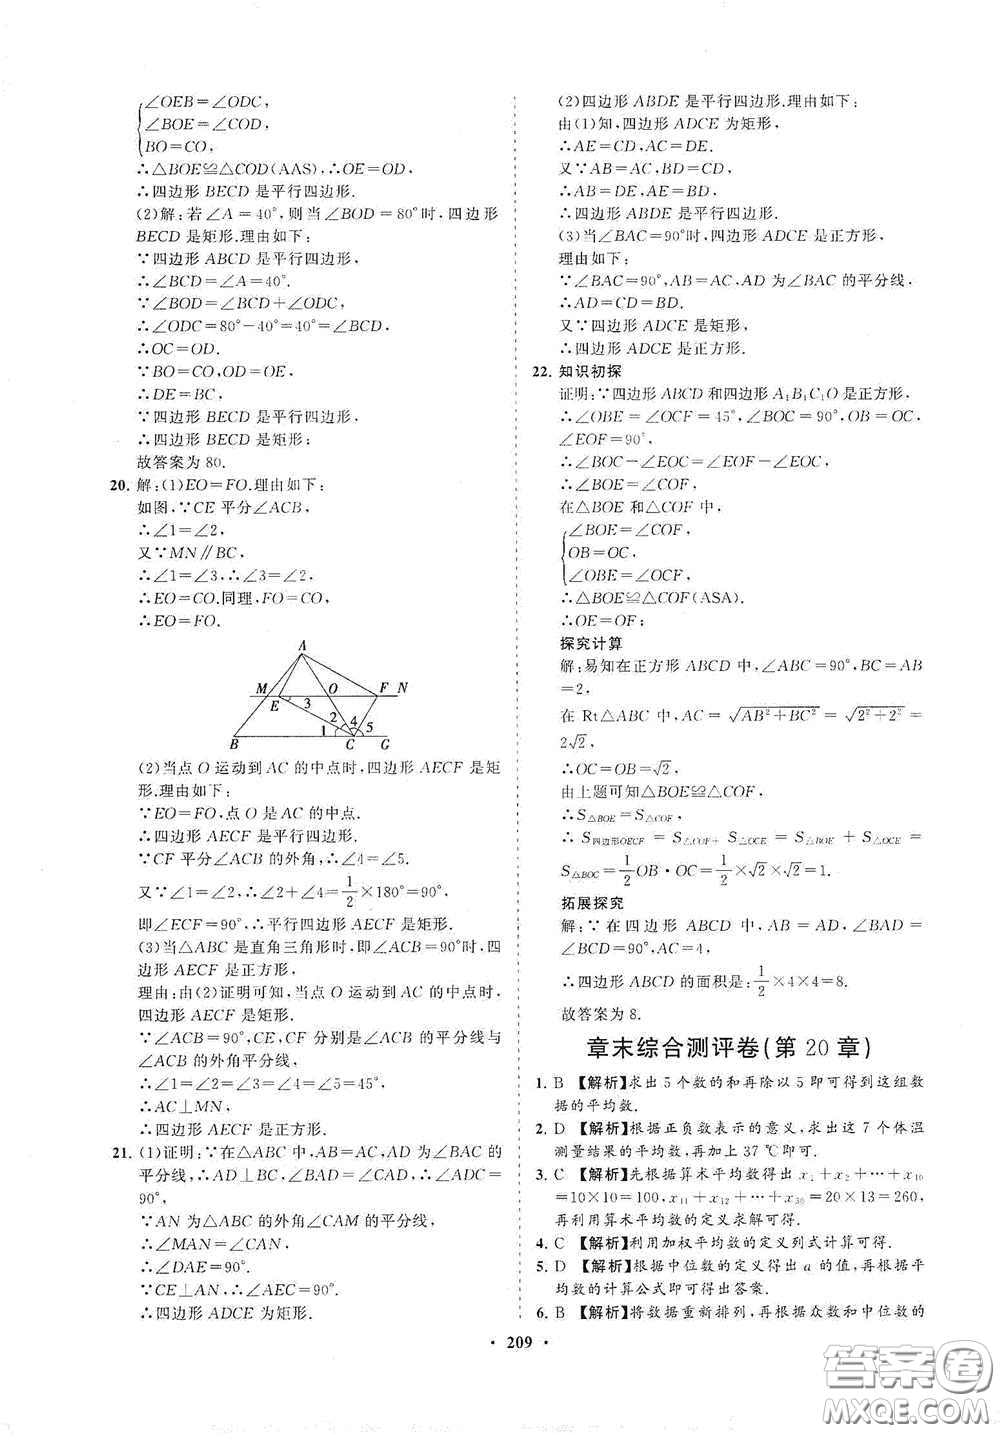 ∠OEB=∠ODC,
∠BOE=∠COD,
BO=CO,
∴△BOE≌△COD(AAS),∴OE=OD,
∴四边形 BECD 是平行四边形.
(2)解:若∠A=40°,则当∠BOD=80°时,四边形
BECD 是矩形.理由如下:
∵四边形 ABCD 是平行四边形,
∴∠BCD=∠A=40°.
∵∠BOD=∠BCD+∠ODC,
∴∠ODC=80°-40°=40°=∠BCD,
∴OC=OD.
∵BO=CO,OD=OE,
∴DE=BC,
∵四边形 BECD 是平行四边形,
∴四边形 BECD 是矩形;
故答案为 80.
20. 解:(1)EO=FO.理由如下:
如图,∵CE 平分∠ACB,
∴∠1=∠2,
又∵MN∥BC,
∴∠1=∠3,∴∠3=∠2,
∴EO=CO.同理,FO=CO,
∴EO=FO.
A
M O F N
E 3
2 4
B 1 C 5 G
(2)当点 O 运动到 AC 的中点时,四边形 AECF 是矩
形.理由如下:
∵EO=FO,点 O 是 AC 的中点.
∴四边形 AECF 是平行四边形.
∵CF 平分∠ACB 的外角,∴∠4=∠5.
又∵∠1=∠2,∴∠2+∠4=1/2×180°=90°,
即∠ECF=90°,∴平行四边形 AECF 是矩形.
(3)当△ABC 是直角三角形时,即∠ACB=90°时,四
边形 AECF 是正方形,
理由:由(2)证明可知,当点 O 运动到 AC 的中点时,
四边形 AECF 是矩形.
∵∠ACB=90°,CE,CF 分别是∠ACB 的平分线与
∠ACB 的外角平分线,
∴∠1=∠2=∠3=∠4=∠5=45°,
∴AC⊥MN,
∴四边形 AECF 是正方形.
21. (1)证明:∵在△ABC 中,AB=AC,AD 为∠BAC 的
平分线,∴AD⊥BC,∠BAD=∠CAD,∴∠ADC=
90°,
∵AN 为△ABC 的外角∠CAM 的平分线,
∴∠MAN=∠CAN,
∴∠DAE=90°.
∵CE⊥AN,∴∠AEC=90°,
∴四边形 ADCE 为矩形.
(2)四边形 ABDE 是平行四边形.理由如下:
由(1)知,四边形 ADCE 为矩形,
∴AE=CD,AC=DE.
又∵AB=AC,BD=CD,
∴AB=DE,AE=BD,
∴四边形 ABDE 是平行四边形.
(3)当∠BAC=90°时,四边形 ADCE 是正方形,
理由如下:
∵∠BAC=90°,AB=AC,AD 为∠BAC 的平分线,
∴AD=CD=BD.
又∵四边形 ADCE 是矩形,
∴四边形 ADCE 是正方形.
22. 知识初探
证明:∵四边形 ABCD 和四边形 A₁B₁C₁O 是正方形,
∴∠OBE=∠OCF=45°,∠BOC=90°,OB=OC,
∠EOF=90°,
∴∠BOC-∠EOC=∠EOF-∠EOC,
∴∠BOE=∠COF,
在△BOE 和△COF 中,
∠BOE=∠COF,
OB=OC,
∠OBE=∠OCF,
∴△BOE≌△COF(ASA).
∴OE=OF;
探究计算
解:易知在正方形 ABCD 中,∠ABC=90°,BC=AB
=2,
在 Rt△ABC 中,AC=√(AB²+BC²)=√(2²+2²)=
2√2,
∴OC=OB=√2,
由上题可知△BOE≌△COF,
∴S△BOE=S△COF,
∴S四边形OECF=S△COF+S△OCE=S△BOE+S△OCE=
S△BOC=1/2OB·OC=1/2×√2×√2=1.
拓展探究
解:∵在四边形 ABCD 中,AB=AD,∠BAD=
∠BCD=90°,AC=4,
∴四边形 ABCD 的面积是:1/2×4×4=8.
故答案为 8.
章末综合测评卷(第 20 章)
1. B 【解析】求出 5 个数的和再除以 5 即可得到这组数
据的平均数.
2. D 【解析】根据正负数表示的意义,求出这 7 个体温
测量结果的平均数,再加上 37 ℃即可.
3. C 【解析】先根据算术平均数得出 x₁+x₂+…+x₁₀
=10×10=100,x₁₁+x₁₂+…+x₃₀=20×13=260,
再利用算术平均数的定义求解可得.
4. C 【解析】利用加权平均数的定义列式计算可得.
5. D 【解析】根据中位数的定义得出 a 的值,再根据平
均数的计算公式即可得出答案.
6. B 【解析】将数据重新排列,再根据众数和中位数的
• 209 •
答案圈
MXQE.COM